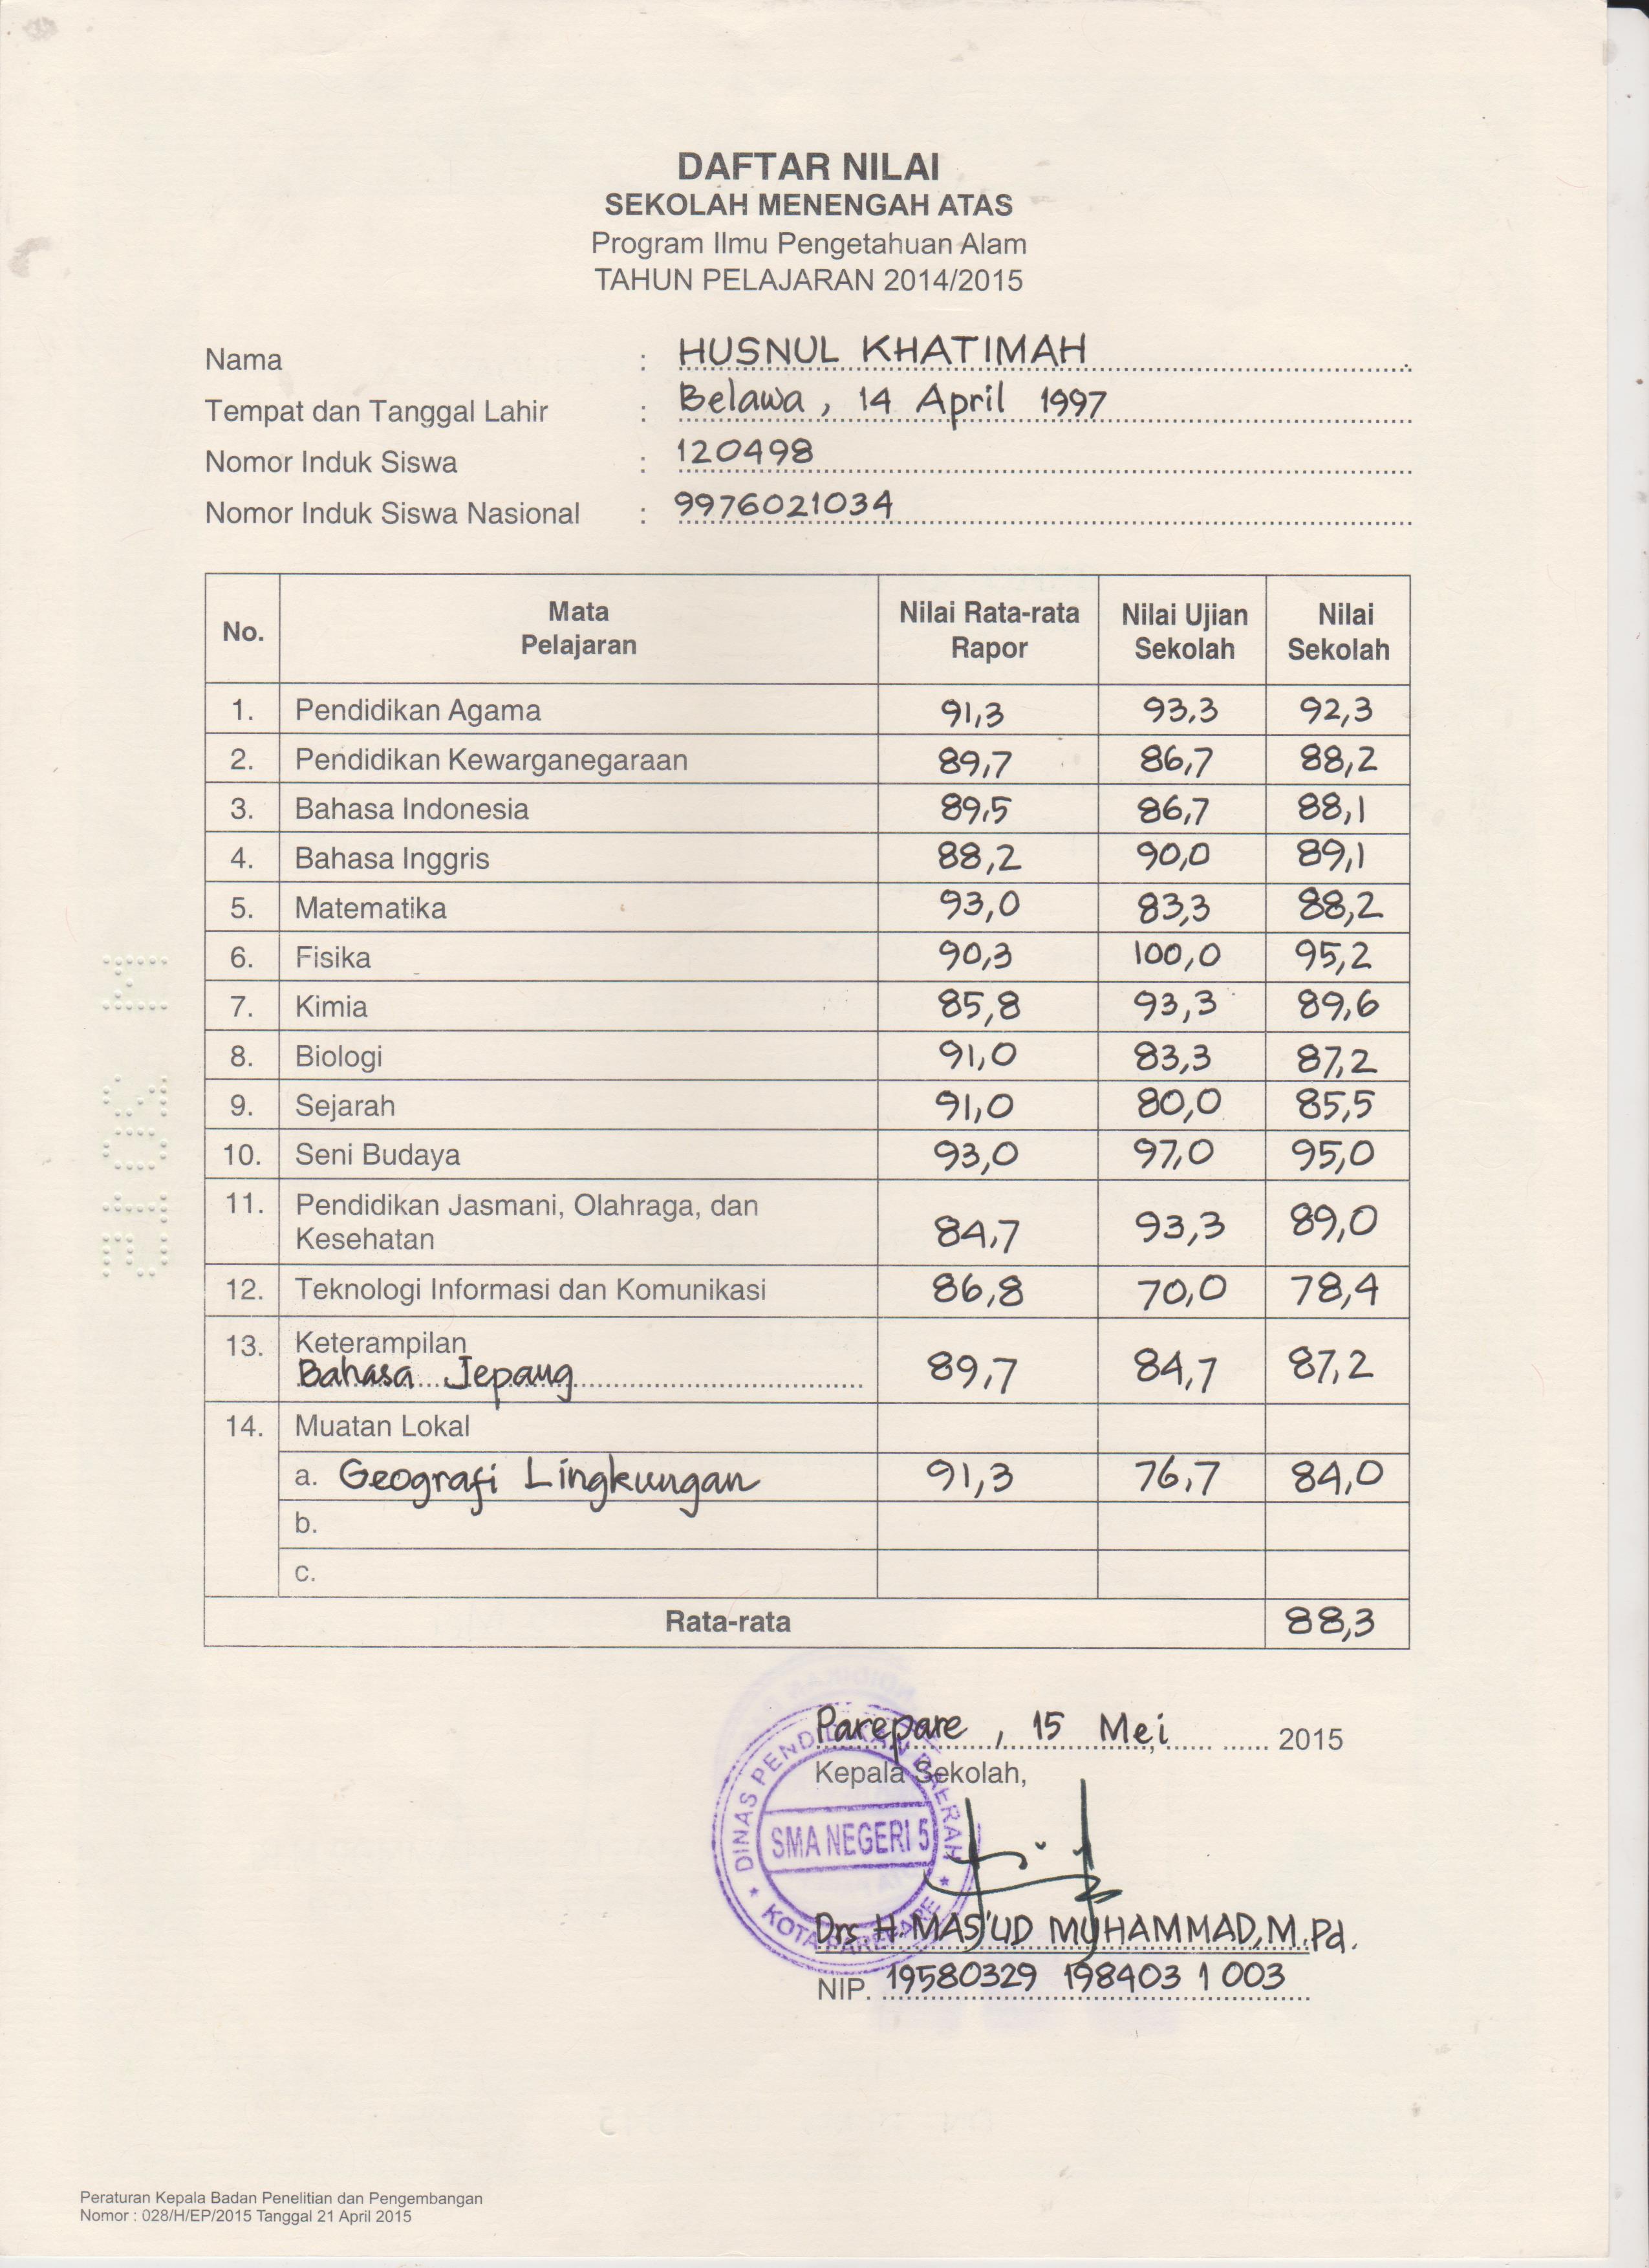 DAFTAR NILAI
SEKOLAH MENENGAH ATAS
Program Ilmu Pengetahuan Alam
TAHUN PELAJARAN 2014/2015
Nama : HUSNUL KHATIMAH
Tempat dan Tanggal Lahir : Belawa, 14 April 1997
Nomor Induk Siswa : 120498
Nomor Induk Siswa Nasional : 9976021034
No. Mata Pelajaran Nilai Rata-rata Rapor Nilai Ujian Sekolah Nilai Sekolah
1. Pendidikan Agama 91,3 93,3 92,3
2. Pendidikan Kewarganegaraan 89,7 86,7 88,2
3. Bahasa Indonesia 89,5 86,7 88,1
4. Bahasa Inggris 88,2 90,0 89,1
5. Matematika 93,0 83,3 88,2
6. Fisika 90,3 100,0 95,2
7. Kimia 85,8 93,3 89,6
8. Biologi 91,0 83,3 87,2
9. Sejarah 91,0 80,0 85,5
10. Seni Budaya 93,0 97,0 95,0
11. Pendidikan Jasmani, Olahraga, dan
Kesehatan 84,7 93,3 89,0
12. Teknologi Informasi dan Komunikasi 86,8 70,0 78,4
13. Keterampilan
Bahasa Jepang 89,7 84,7 87,2
14. Muatan Lokal
a. Geografi Lingkungan 91,3 76,7 84,0
b.
c.
Rata-rata 88,3
Parepare, 15 Mei 2015
Kepala Sekolah,
DINAS PENDIDIKAN DAERAH
SMA NEGERI 5
KOTA PAREPARE
Drs. H. MAS'UD MUHAMMAD, M.Pd.
NIP. 19580329 198403 1 003
Peraturan Kepala Badan Penelitian dan Pengembangan
Nomor : 028/H/EP/2015 Tanggal 21 April 2015